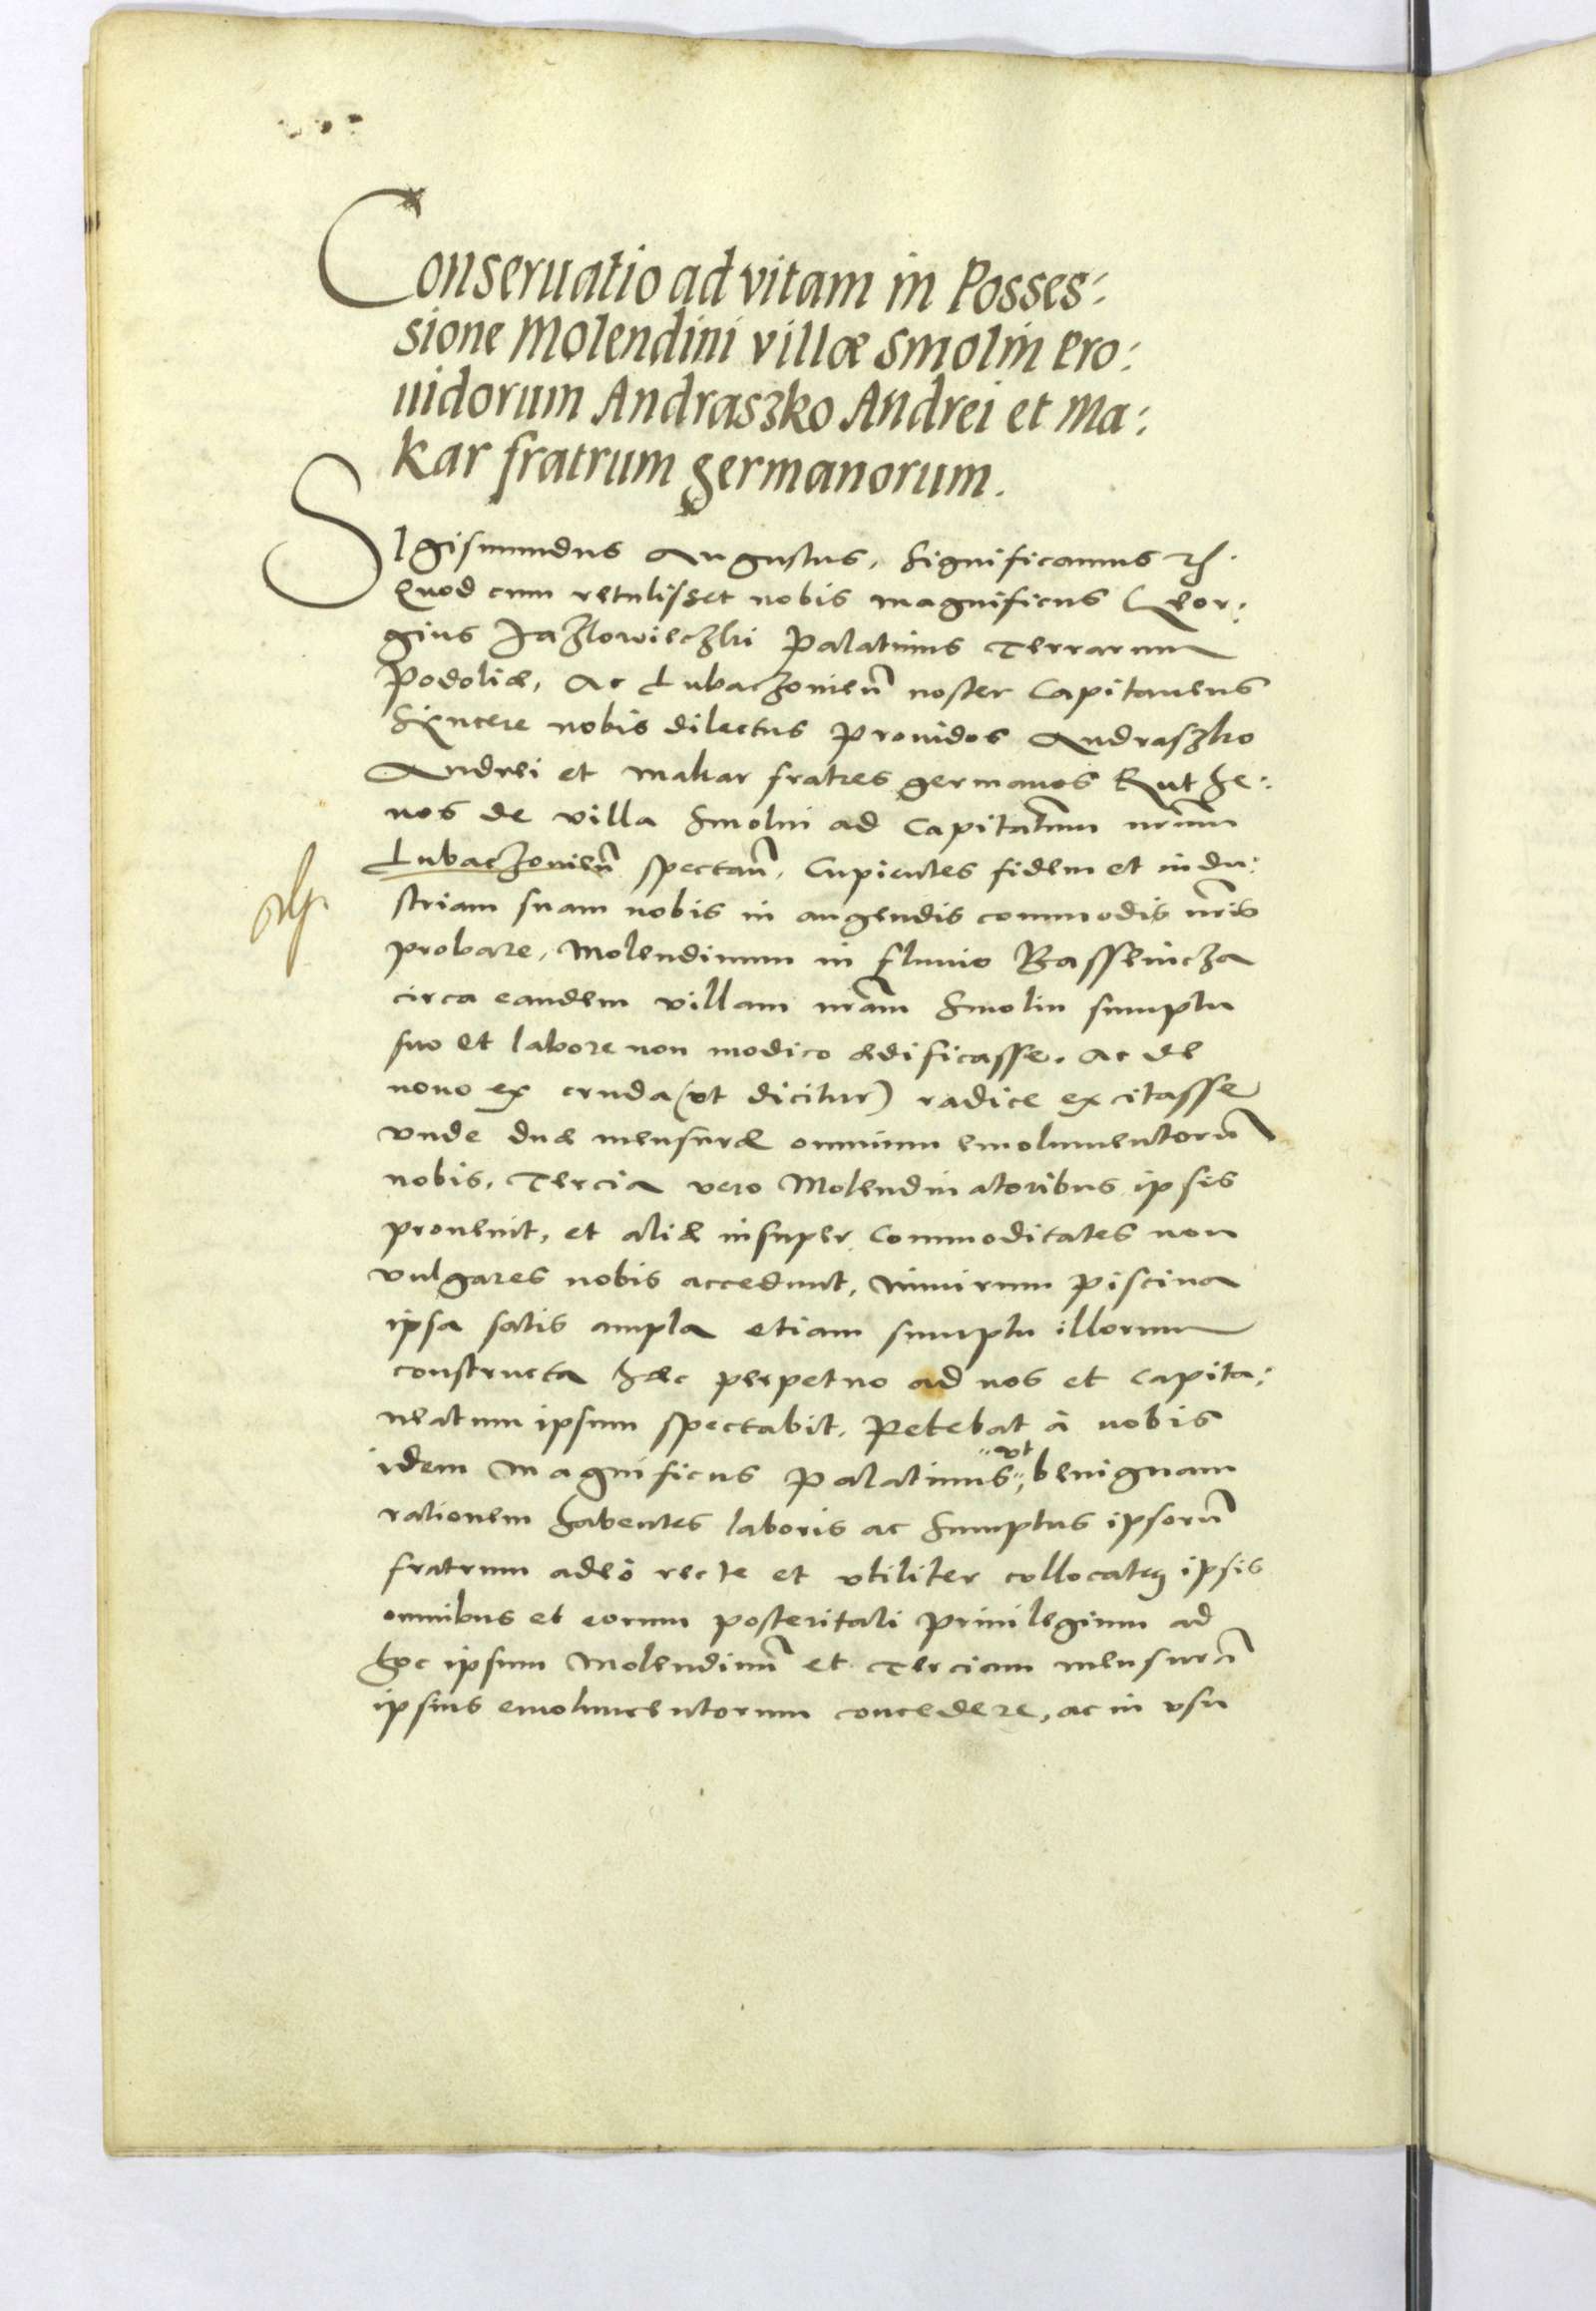 Conseruatio ad vitam in Posses:
sione Molendini villæ Smolin Pro:
uidorum Andraszko Andrei et Ma:
kar fratrum germanorum.
SIgismundus Augustus, Significamus etc.
Quod cum retulisset nobis magnificus Geor:
gius Jazlowieczki Palatinus Terrarum
Podoliæ, Ac Lubaczouieñ noster Capitaneus
Syncere nobis dilectus Prouidos Andraszko
Andrei et Makar fratres germanos Ruthe:
nos de villa Smolin ad Capitatum nrum
Lubaczouieñ spectañ, Cupientes fidem et indu:
striam suam nobis in augendis commodis nris
probare, Molendinum in fluuio Basseincza
circa eandem villam nram Smolin sumptu
suo et labore non modico ædificasse. Ac de
nouo ex cruda (vt dicitur) radice excitasse
vnde duæ mensuræ omnium emolumentorũ
nobis, Tercia vero Molendinatoribus ipsis
prouenit, et aliæ insuper Commoditates non
vulgares nobis accedunt, Nimirum piscina
ipsa satis ampla etiam sumptu illorum
constructa hæc perpetuo ad nos et Capita:
neatum ipsum spectabit. Petebat à nobis
idem Magnificus Palatinus vt benignam
rationem habentes laboris ac Sumptus ipsorũ
fratrum adeò recte et vtiliter collocatus ipsis
omnibus et eorum posteritati Priuilegium ad
hoc ipsum Molendinũ et Terciam mensurã
ipsius emolumentorum concedere, ac in vsu